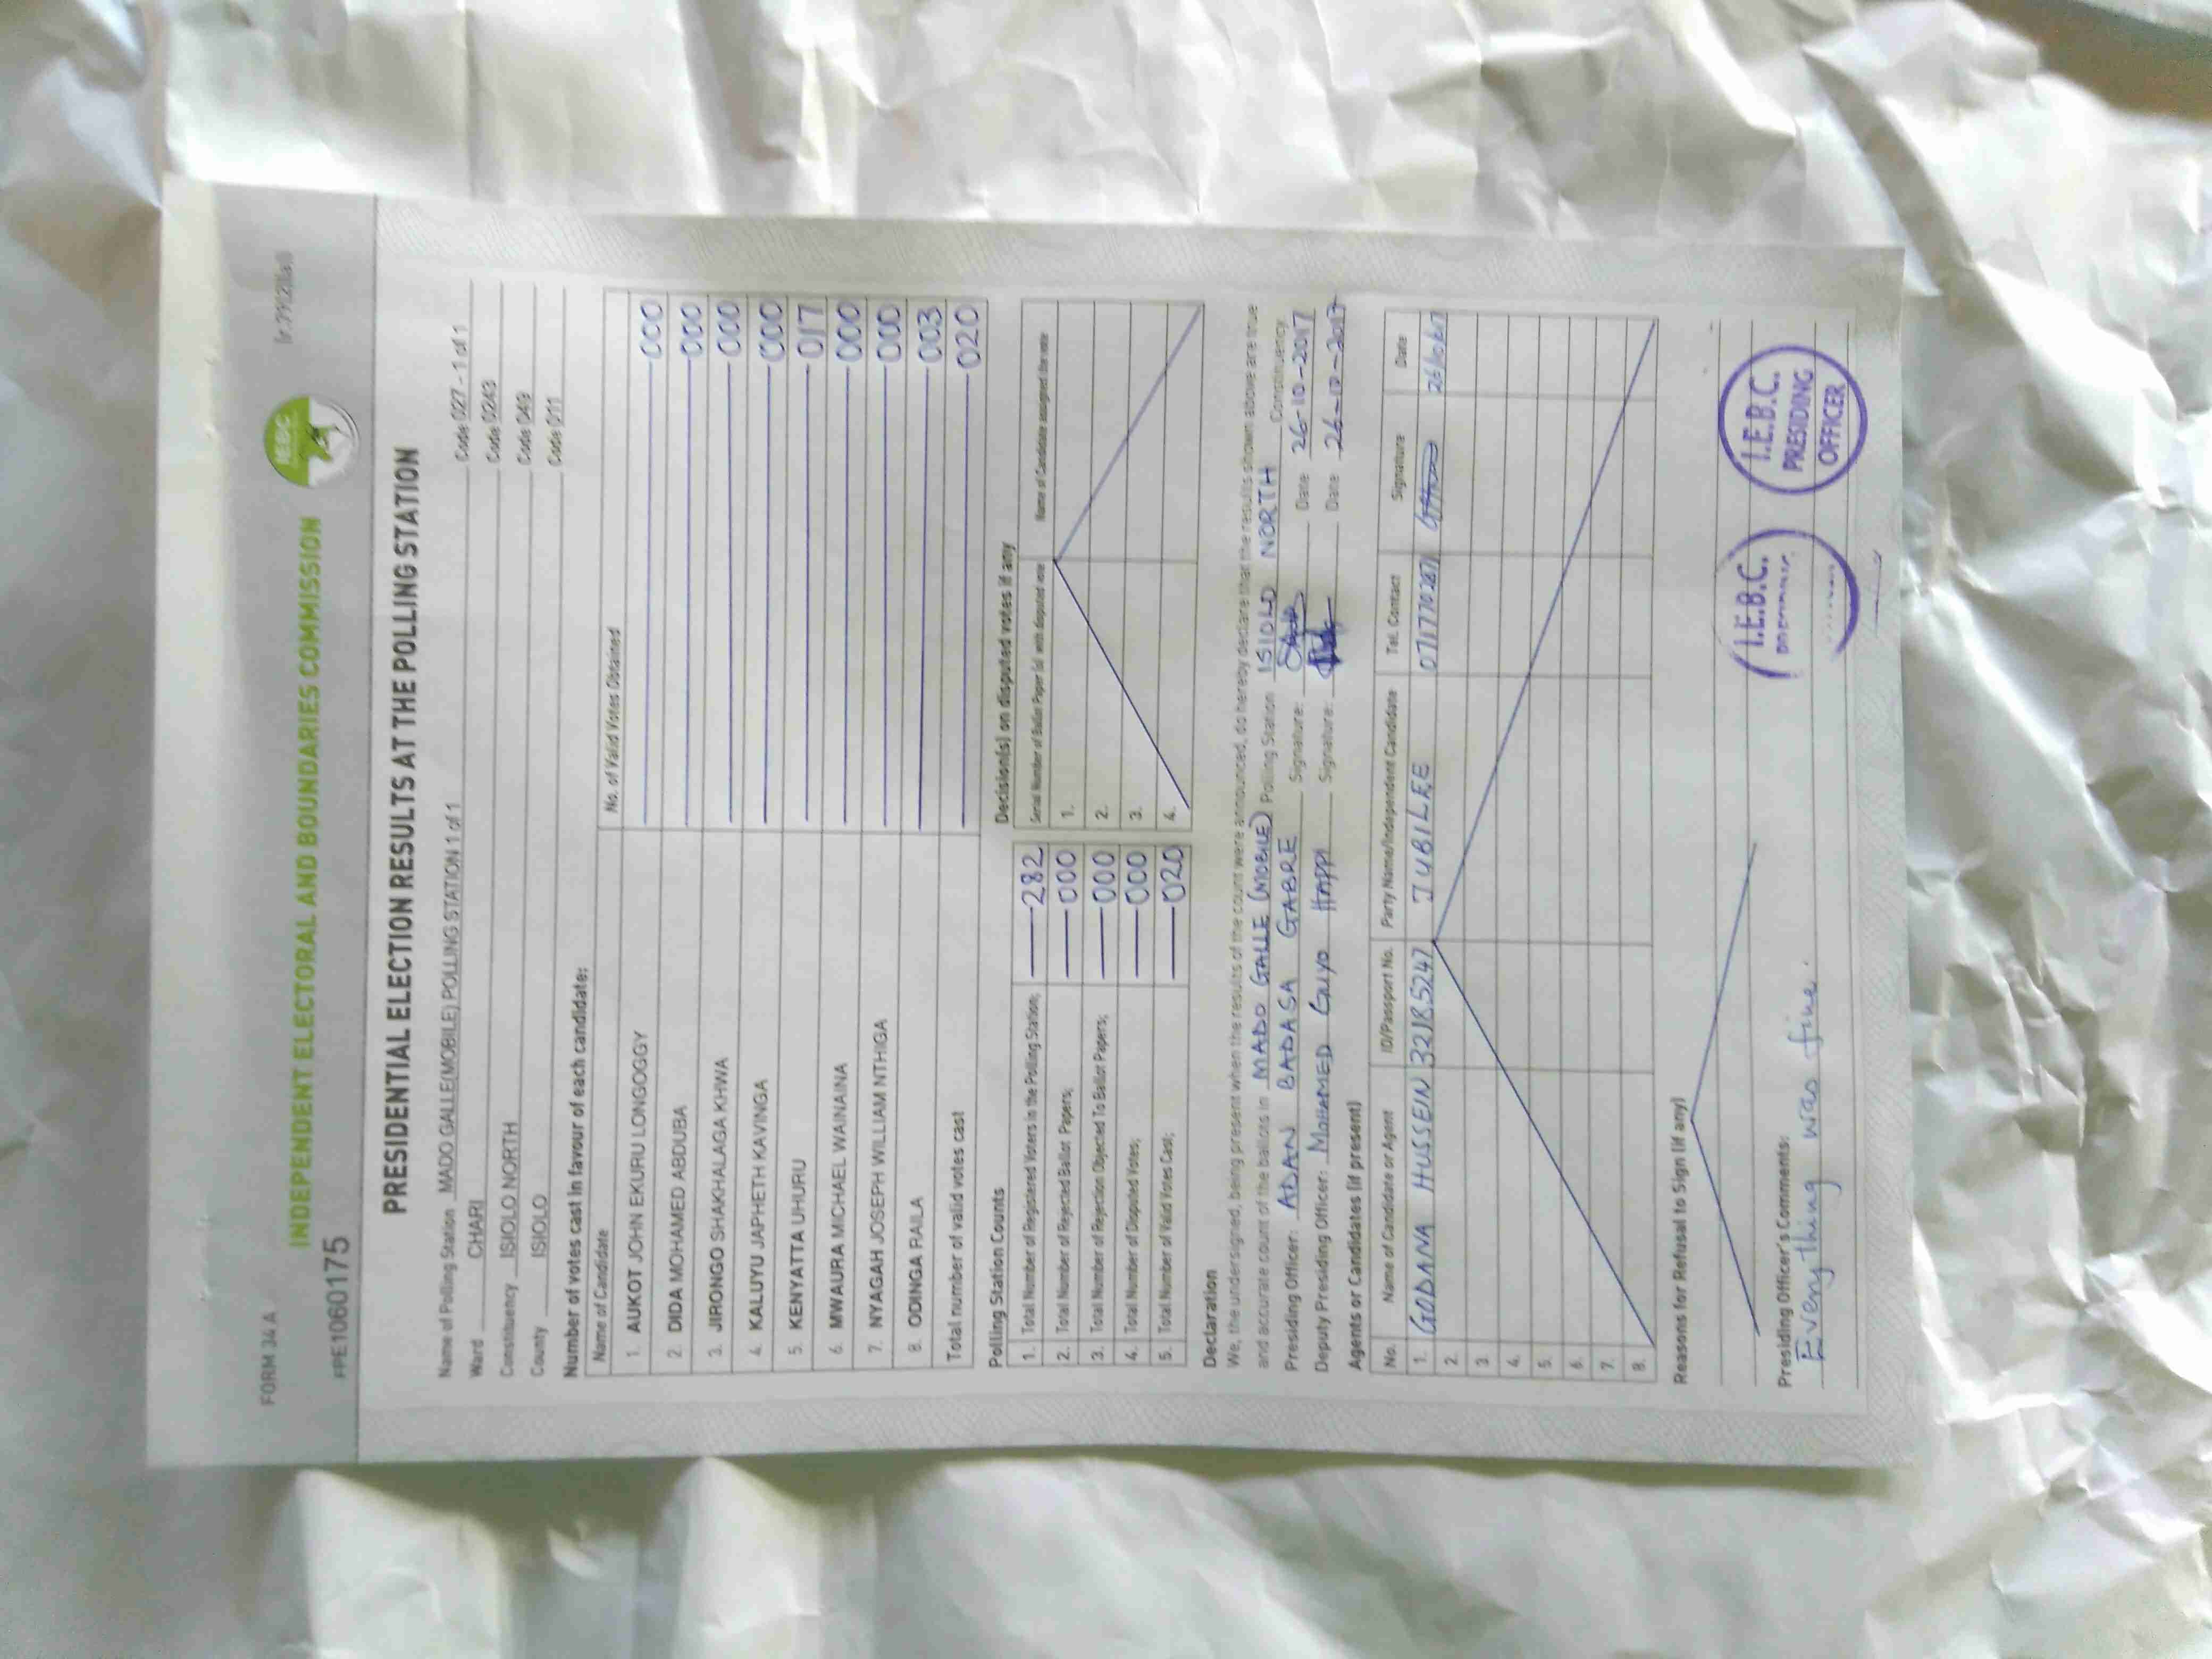 FORM 34 A
INDEPENDENT ELECTORAL AND BOUNDARIES COMMISSION
IEBC
FPE1060175
PRESIDENTIAL ELECTION RESULTS AT THE POLLING STATION
Name of Polling Station MADO GALLE(MOBILE) POLLING STATION 1 of 1 Code 027 - 1 of 1
Ward CHARI Code 0243
Constituency ISIOLO NORTH Code 049
County ISIOLO Code 011
Number of votes cast in favour of each candidate:
Name of Candidate No. of Valid Votes Obtained
1. AUKOT JOHN EKURU LONGOGGY 000
2. DIDA MOHAMED ABDUBA 000
3. JIRONGO SHAKHALAGA KHWA 000
4. KALUYU JAPHETH KAVINGA 000
5. KENYATTA UHURU 017
6. MWAURA MICHAEL WAINAINA 000
7. NYAGAH JOSEPH WILLIAM NTHIGA 000
8. ODINGA RAILA 003
Total number of valid votes cast 020
Polling Station Counts
1. Total Number of Registered Voters in the Polling Station; 282
2. Total Number of Rejected Ballot Papers; 000
3. Total Number of Rejection Objected To Ballot Papers; 000
4. Total Number of Disputed Votes; 000
5. Total Number of Valid Votes Cast; 020
Decision(s) on disputed votes if any
Serial Number of Ballot Paper (s) with disputed vote Name of Candidate assigned the vote
1.
2.
3.
4.
Declaration
We, the undersigned, being present when the results of the count were announced, do hereby declare that the results shown above are true
and accurate count of the ballots in MADO GALLE (MOBILE) Polling Station ISIOLO NORTH Constituency.
Presiding Officer: ADAN BADASA GABRE Signature: Date 26-10-2017
Deputy Presiding Officer: MOHAMED GUYO HAPPI Signature: Date 26-10-2017
Agents or Candidates (if present)
No. Name of Candidate or Agent ID/Passport No. Party Name/Independent Candidate Tel. Contact Signature Date
1. GODANA HUSSEIN JUBILEE
2.
3.
4.
5.
6.
7.
8.
Reasons for Refusal to Sign (if any)
Presiding Officer's Comments:
Everything was fine.
I.E.B.C.
I.E.B.C.
PRESIDING
OFFICER